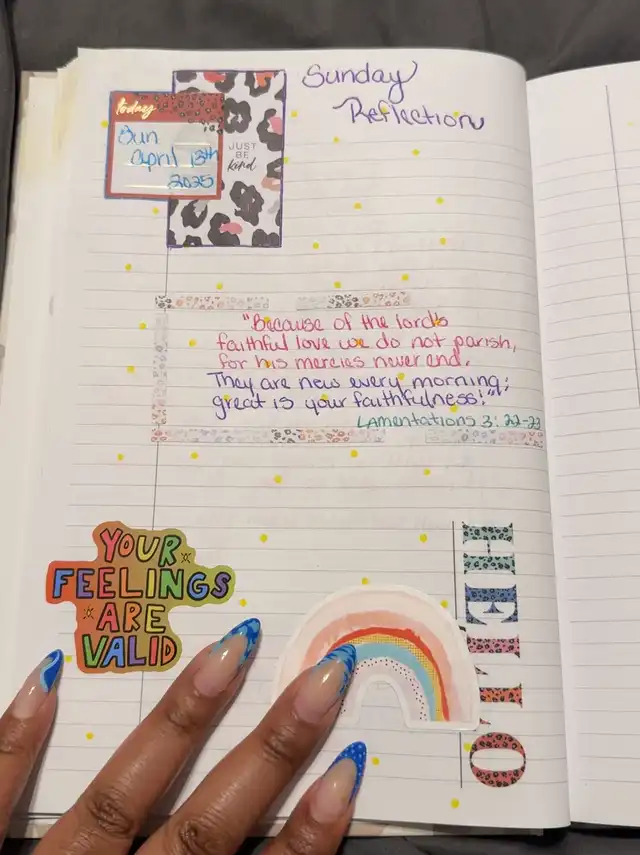 Sunday
Reflection
today
Sun
April 13th
2025
JUST
BE
kind
"Because of the lord's
faithful love we do not parish,
for his mercies never end.
They are new every morning;
great is your faithfulness!"
Lamentations 3:22-23
YOUR
FEELINGS
ARE
VALID
HELLO